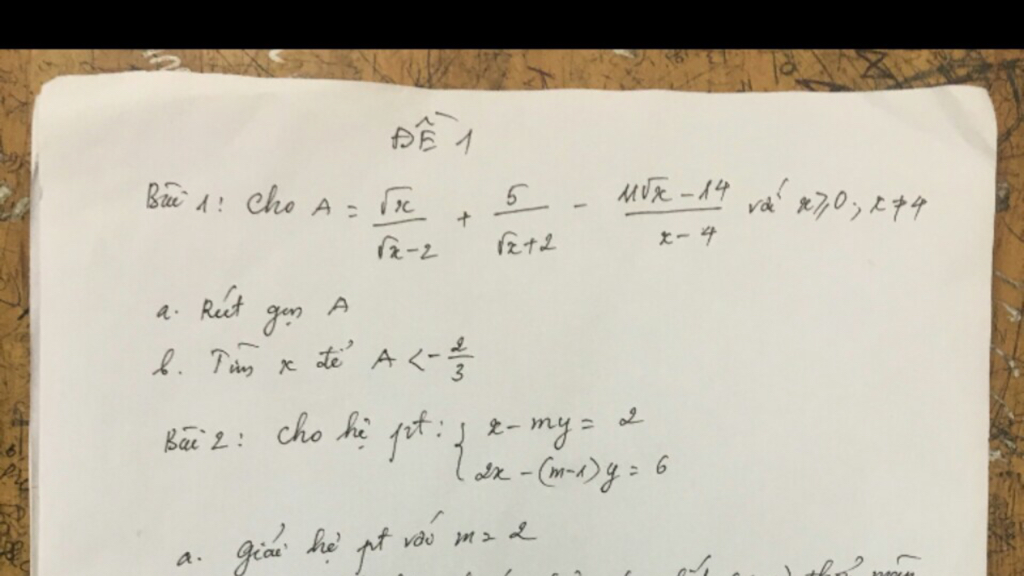 ĐỀ 1
Bài 1: Cho A = √x/(√x-2) + 5/(√x+2) - (11√x-14)/(x-4) với x≥0; x≠4
a. Rút gọn A
b. Tìm x để A < -2/3
Bài 2: Cho hệ pt: { x - my = 2
2x - (m-1)y = 6
a. Giải hệ pt với m = 2
thoả mãn